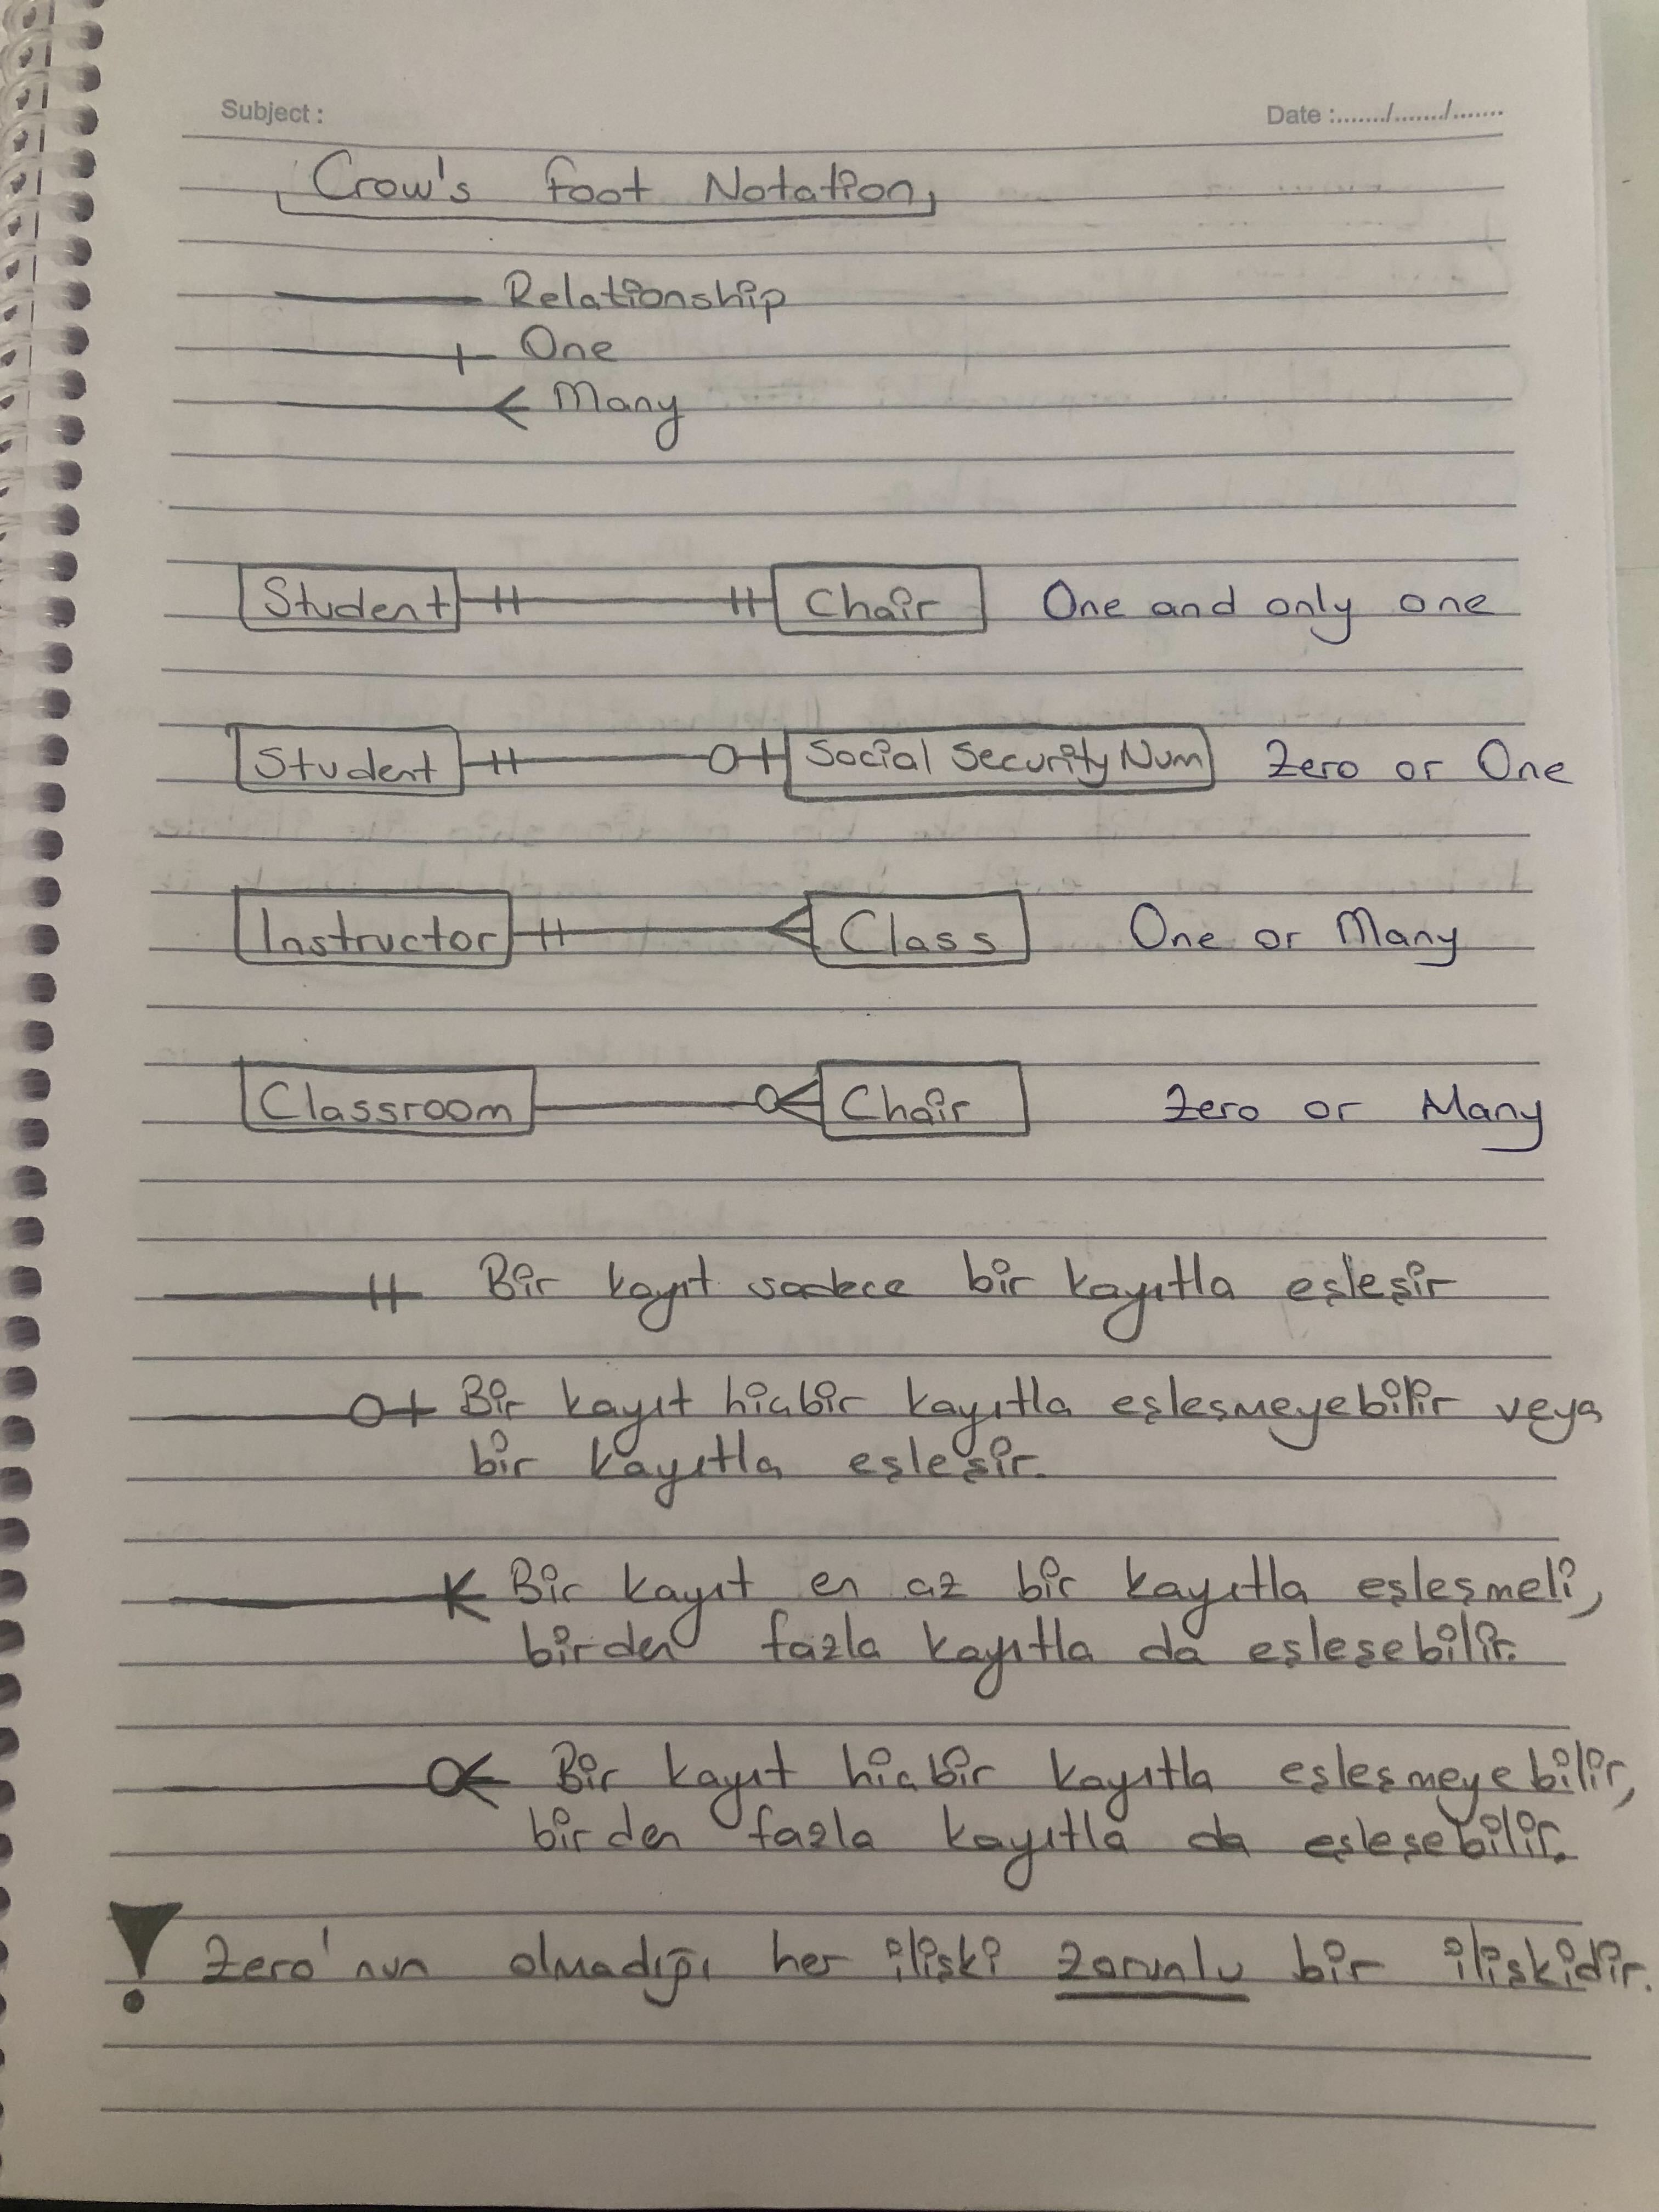 Subject :
Date :......./......./.......
Crow's Foot Notation
Relationship
One
Many
Student Chair One and only one
Student Social Security Num Zero or One
Instructor Class One or Many
Classroom Chair Zero or Many
Bir kayıt sadece bir kayıtla eşleşir
Bir kayıt hiçbir kayıtla eşleşmeyebilir veya
bir kayıtla eşleşir.
Bir kayıt en az bir kayıtla eşleşmeli,
birden fazla kayıtla da eşleşebilir.
Bir kayıt hiçbir kayıtla eşleşmeyebilir,
birden fazla kayıtla da eşleşebilir.
! Zero'nun olmadığı her ilişki zorunlu bir ilişkidir.